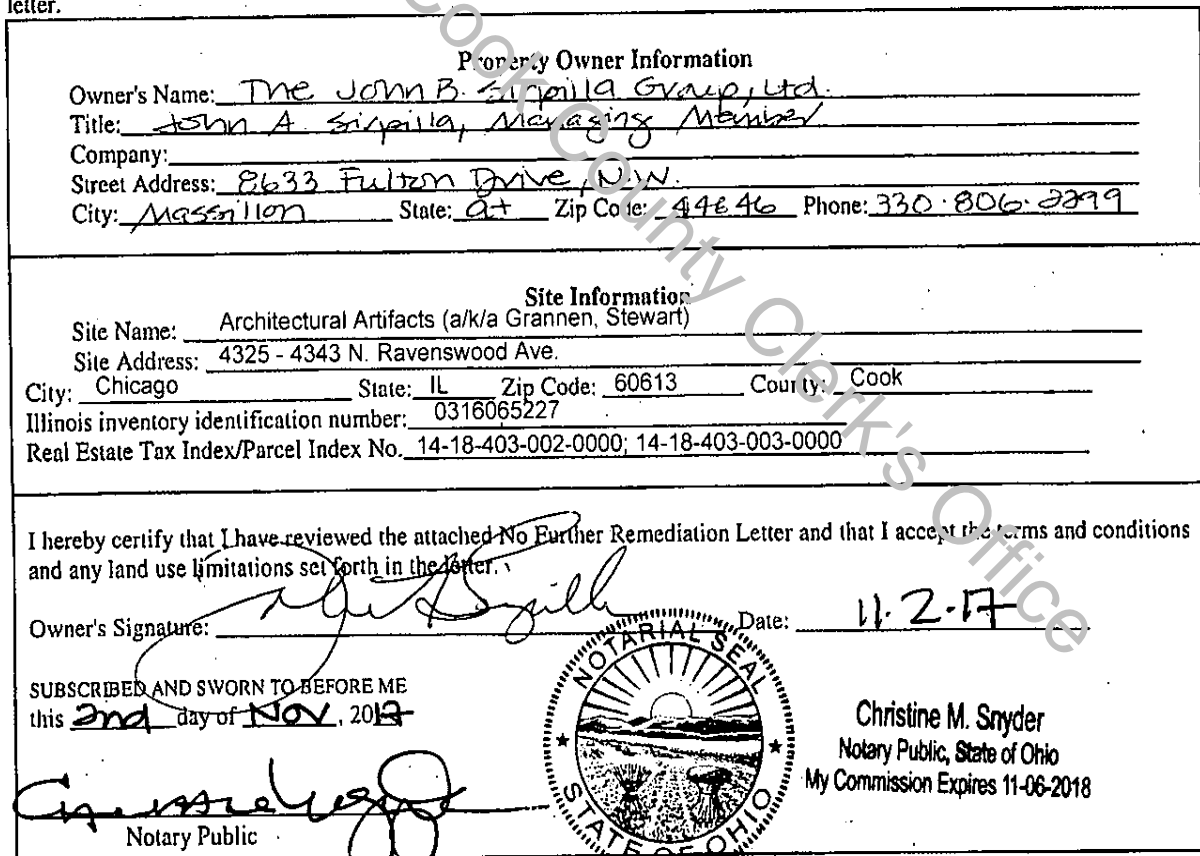 letter.
Property Owner Information
Owner's Name: The John B. Sirpilla Group, Ltd.
Title: John A. Sirpilla, Managing Member
Company:
Street Address: 8633 Fulton Drive, N.W.
City: Massillon State: OH Zip Code: 44646 Phone: 330·806·2299
Site Information
Site Name: Architectural Artifacts (a/k/a Grannen, Stewart)
Site Address: 4325 - 4343 N. Ravenswood Ave.
City: Chicago State: IL Zip Code: 60613 County: Cook
Illinois inventory identification number: 0316065227
Real Estate Tax Index/Parcel Index No. 14-18-403-002-0000; 14-18-403-003-0000
I hereby certify that I have reviewed the attached No Further Remediation Letter and that I accept the terms and conditions
and any land use limitations set forth in the letter.
Owner's Signature: Date: 11·2·17
SUBSCRIBED AND SWORN TO BEFORE ME
this 2nd day of NOV, 2017
Notary Public
NOTARIAL SEAL
STATE OF OHIO
Christine M. Snyder
Notary Public, State of Ohio
My Commission Expires 11-06-2018
Cook County Clerk's Office